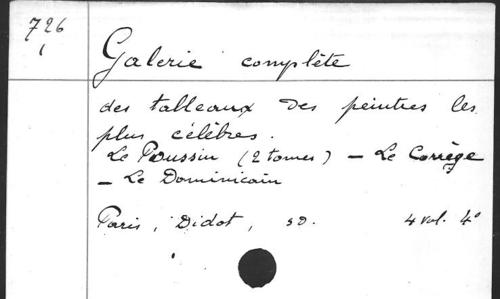 726
1
Galerie complète
des tableaux des peintres les
plus célèbres.
Le Poussin (2 tomes) – Le Corrège
– Le Dominicain
Paris, Didot, sd. 4 vol. 4°